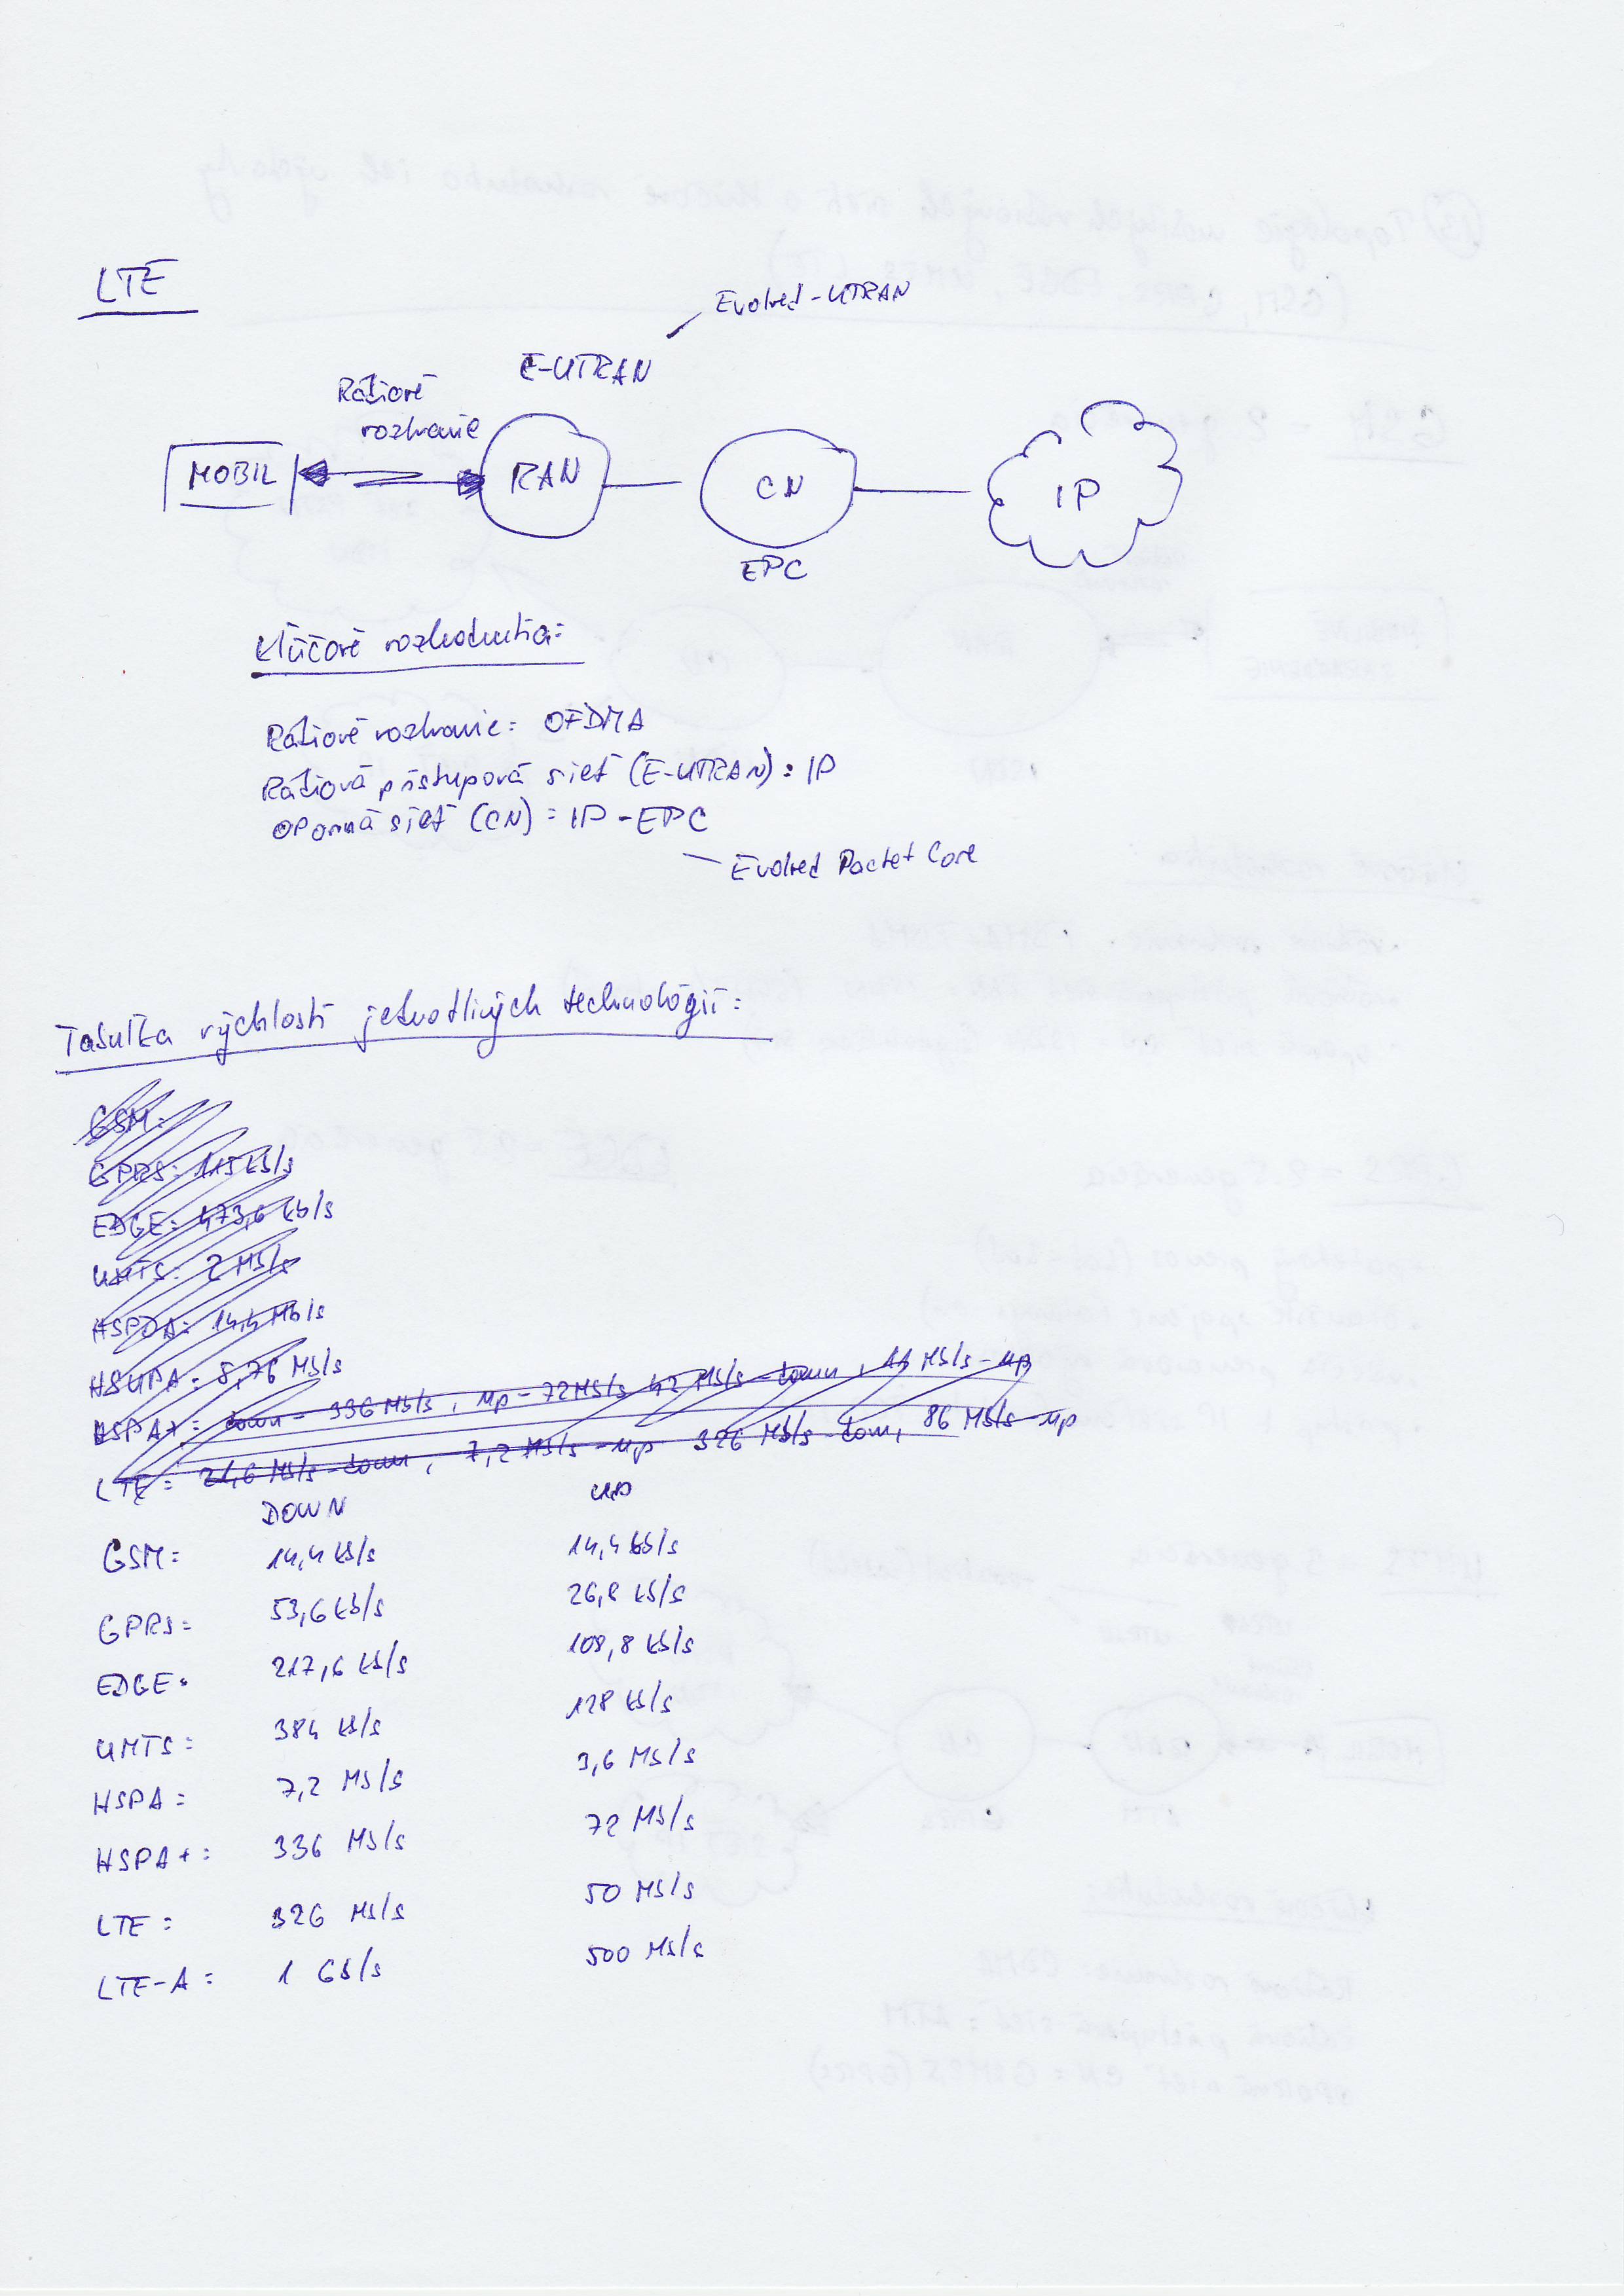 LTE
Evolved-UTRAN
E-UTRAN
Rádiové
rozhranie
MOBIL
RAN
CN
IP
EPC
Kľúčové rozhodnutia:
Rádiové rozhranie: OFDMA
Rádiová prístupová sieť (E-UTRAN): IP
oporná sieť (CN) = IP-EPC
Evolved Packet Core
Tabuľka rýchlostí jednotlivých technológií:
GSM:
GPRS: 115 kb/s
EDGE: 473,6 kb/s
UMTS: 2 Mb/s
HSPDA: 14,4 Mb/s
HSUPA: 5,76 Mb/s
HSPA+: down - 336 Mb/s, up - 72Mb/s 42 Mb/s - down, 11 Mb/s - up
LTE: 21,6 Mb/s - down, 7,2 Mb/s - up 326 Mb/s - down, 86 Mb/s - up
DOWN UP
GSM: 14,4 kb/s 14,4 kb/s
GPRS: 53,6 kb/s 26,8 kb/s
EDGE: 217,6 kb/s 108,8 kb/s
UMTS: 384 kb/s 128 kb/s
HSPA: 7,2 Mb/s 3,6 Mb/s
HSPA+: 336 Mb/s 72 Mb/s
LTE: 326 Mb/s 50 Mb/s
LTE-A: 1 Gb/s 500 Mb/s